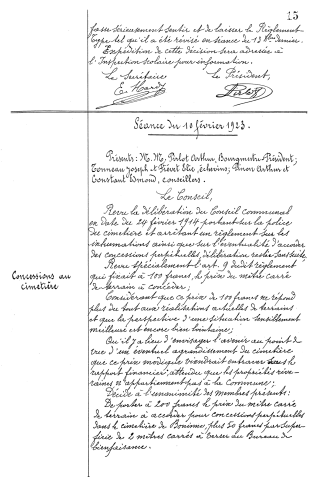 15
fasse sérieusement sentir et de laisser le Règlement
type tel qu'il a été révisé en séance du 12 dernier.
Expédition de cette décision sera adressée à
l'Inspection scolaire pour information.
Le Secrétaire Le Président,
E. Hardy
Séance du 10 février 1923.
Présents: M. M, Pirlot Arthur, Bourgmestre-Président;
Tonneau Joseph et Frérot Elie, échevins; Pinon Arthur et
Constant Edmond, conseillers.
Le Conseil,
Revu la délibération du Conseil communal
en date du 24 février 1914 portant sur la police
des cimetières et arrêtant un règlement sur les
inhumations ainsi que sur l'éventualité d'accorder
des concessions perpétuelles, délibération
Revu spécialement l'art. 9 dudit règlement
qui fixait à 100 francs, le prix du mètre carré
Concessions au
cimetière
de terrain à concéder;
Considérant que ce prix de 100 francs ne répond
plus du tout aux réalisations actuelles de terrains
et que la perspective d'une situation sensiblement
meilleure est encore bien lointaine;
Qu'il y a lieu d'envisager l'avenir au point de
vue d'un éventuel agrandissement du cimetière
que ce prix modique viendrait entraver sous le
rapport financier, attendu que les propriétés rive-
raines n'appartiennent pas à la Commune;
Décide à l'unanimité des membres présents:
De porter à 200 francs le prix du mètre carré
de terrain à accorder pour concessions perpétuelles
dans le cimetière de Boninne, plus 50 francs par super-
ficie de 2 mètres carrés à verser au Bureau de
bienfaisance.